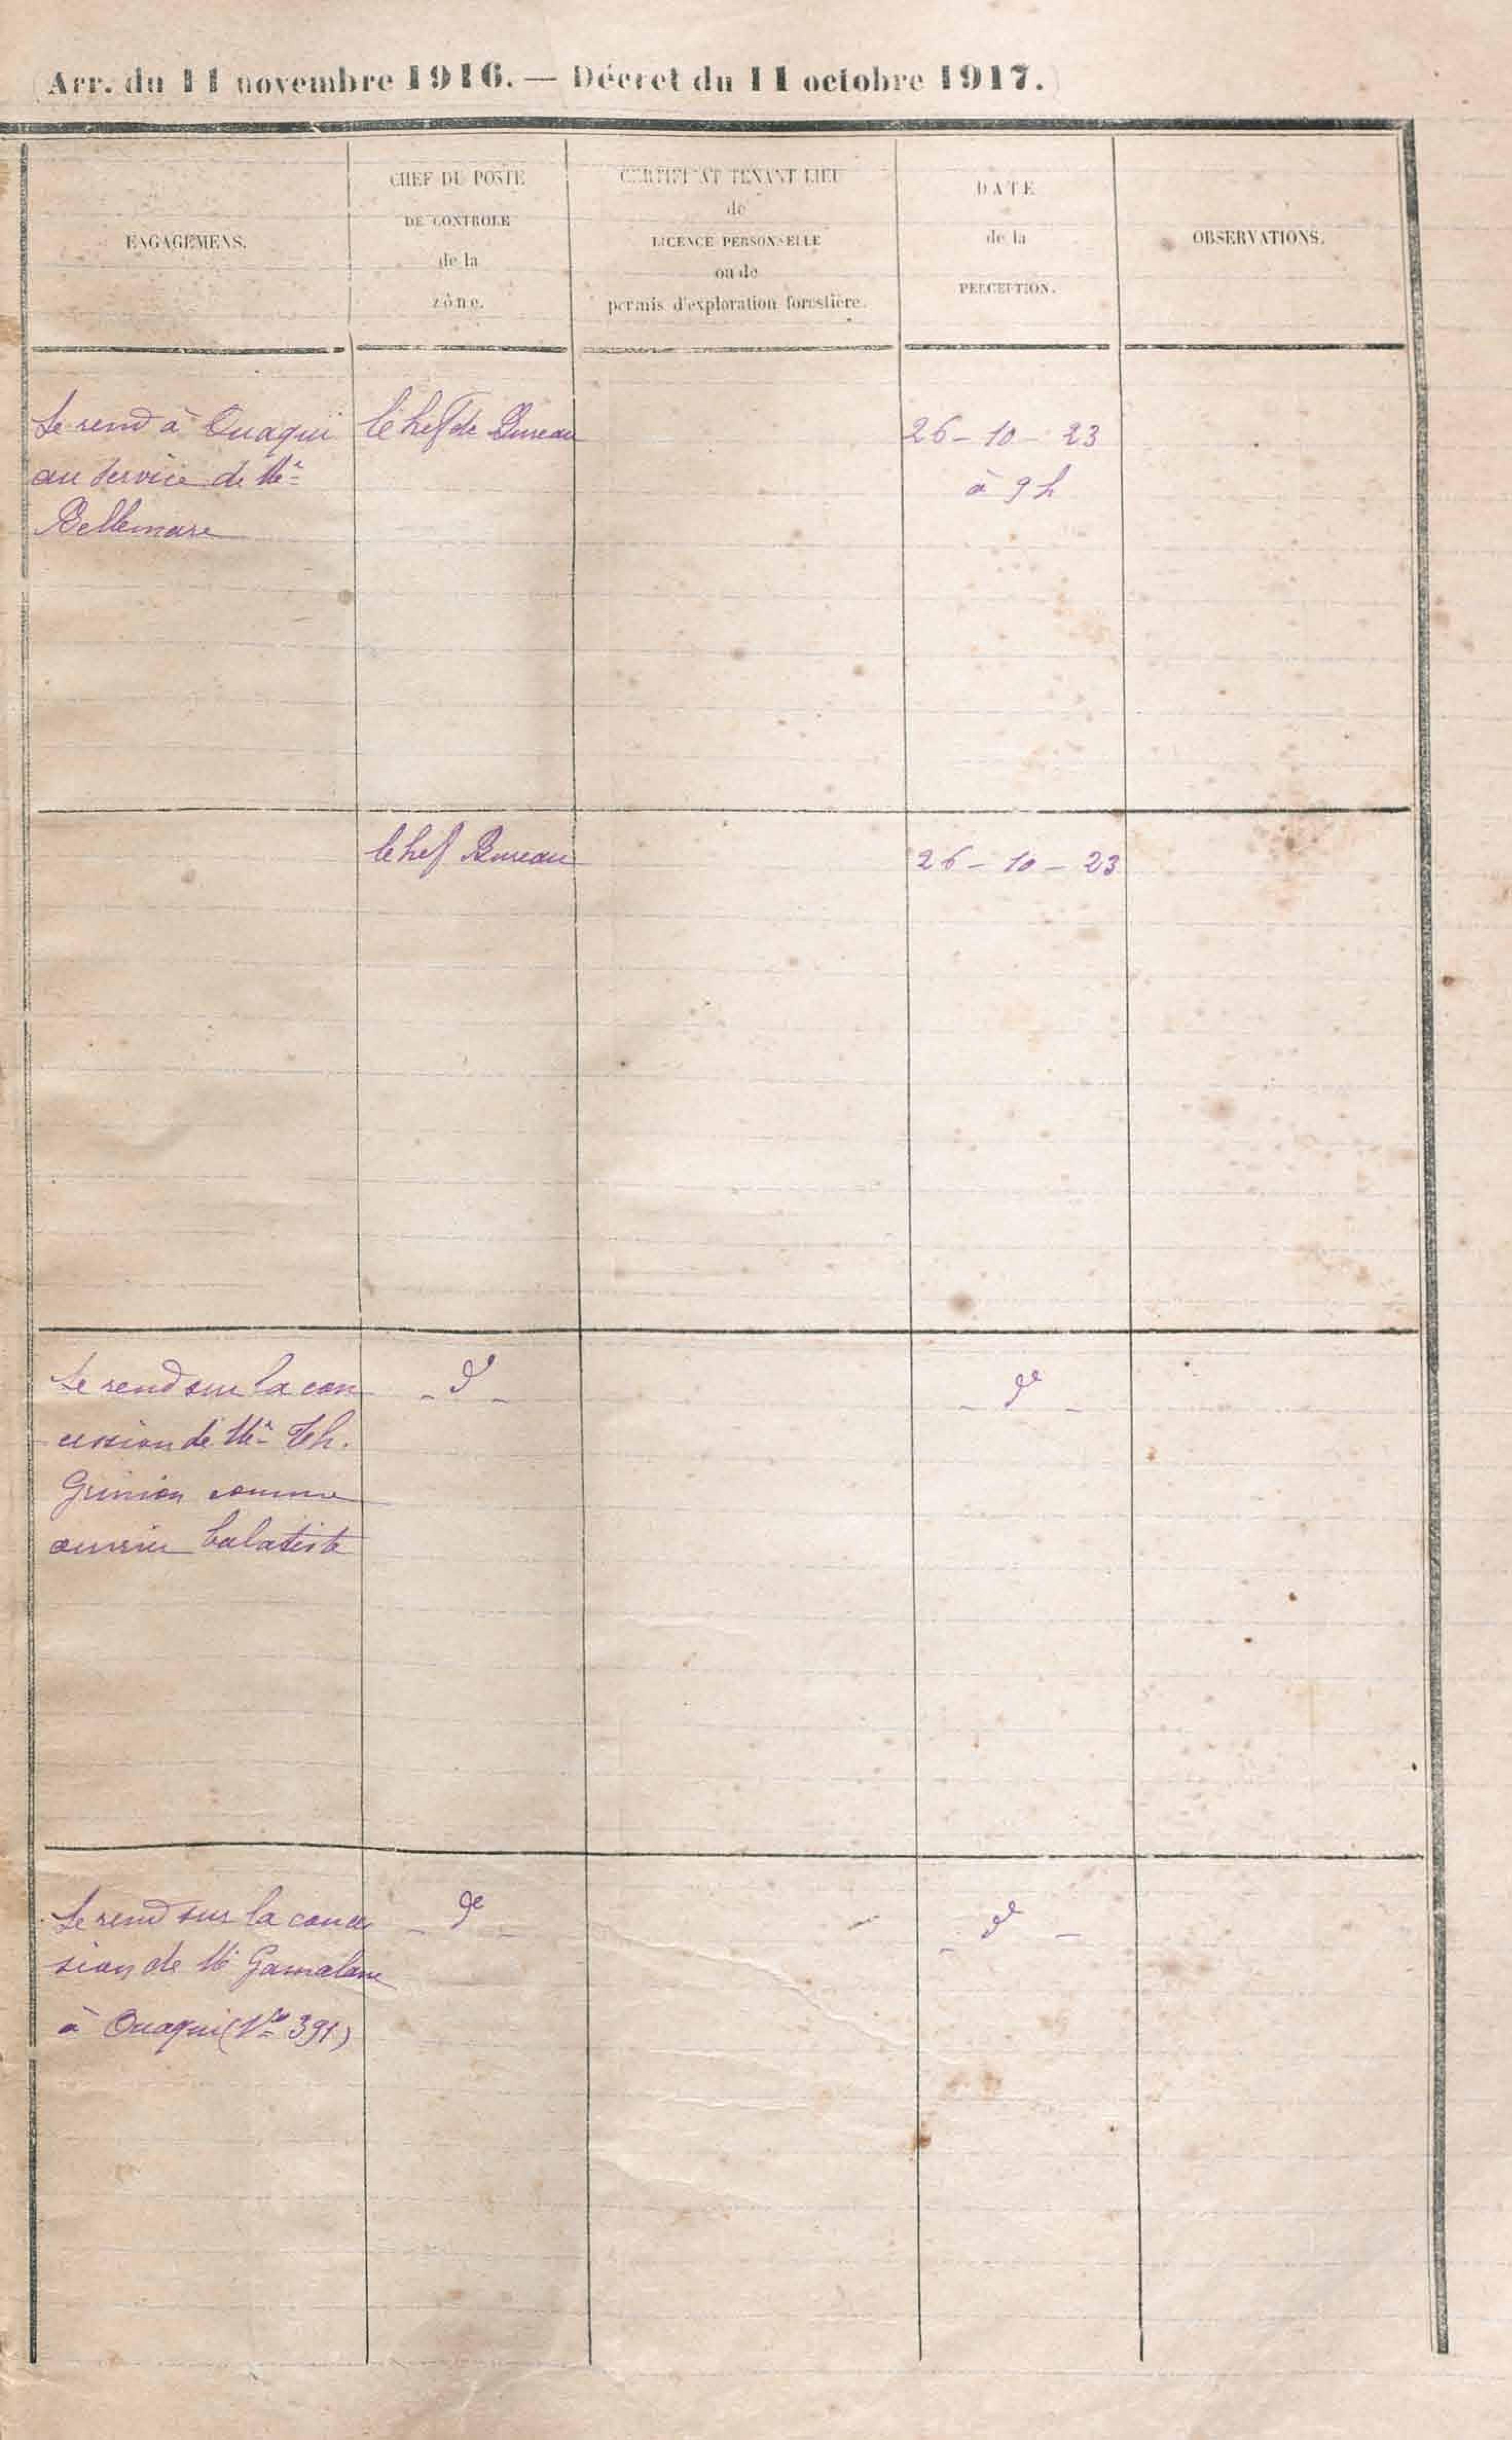 (Arr. du 11 novembre 1916. — Décret du 11 octobre 1917.)
ENGAGEMENS.
CHEF DU POSTE
DE CONTROLE
de la
zône.
CERTIFICAT TENANT LIEU
de
LICENCE PERSONNELLE
ou de
permis d'exploration forestière.
DATE
de la
PERCEPTION.
OBSERVATIONS.
Se rend à Ouaqui
au service de Mr
Bellemare
Chef de Bureau
26 - 10 - 23
à 9 h
Chef Bureau
26 - 10 - 23
Se rend sur la con
cession de Mr Th.
comme
ouvrier balatiste
- d° -
- d° -
Se rend sur la conces
sion de Mr
à Ouaqui (No 391)
- d° -
- d° -